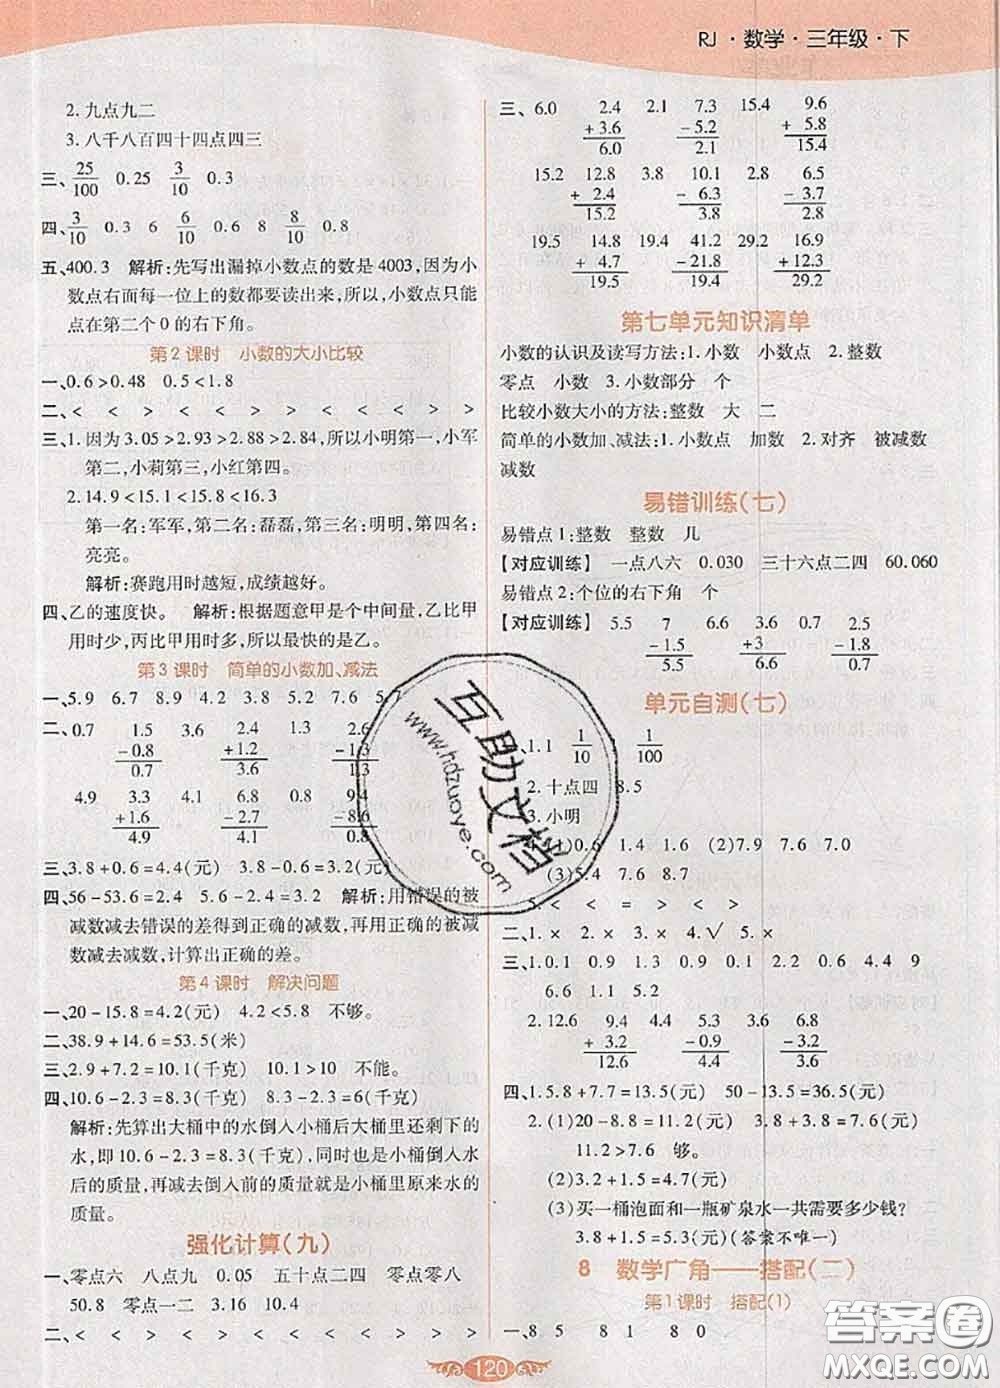 RJ · 数学 · 三年级 · 下
2. 九点九二
3. 八千八百四十四点四三
三、25/100 0.25 3/10 0.3
四、3/10 0.3 6 6/10 0.6 8 8/10 0.8
五、400.3 解析:先写出漏掉小数点的数是4003,因为小
数点右面每一位上的数都要读出来,所以,小数点只能
点在第二个0的右下角。
第2课时 小数的大小比较
一、0.6>0.48 0.5<1.8
二、< < > > < > < < < < > >
三、1. 因为3.05>2.93>2.88>2.84,所以小明第一,小军
第二,小莉第三,小红第四。
2. 14.9<15.1<15.8<16.3
第一名:军军,第二名:磊磊,第三名:明明,第四名:
亮亮。
解析:赛跑用时越短,成绩越好。
四、乙的速度快。 解析:根据题意甲是个中间量,乙比甲
用时少,丙比甲用时多,所以最快的是乙。
第3课时 简单的小数加、减法
一、5.9 6.7 8.9 4.2 3.8 5.2 7.6 5.7
二、0.7 1.5 3.6 2.4 1.3 2.6
-0.8 +1.2 -1.3
0.7 3.6 1.3
4.9 3.3 4.1 6.8 0.8 9.4
+1.6 -2.7 -8.6
4.9 4.1 0.8
三、3.8+0.6=4.4(元) 3.8-0.6=3.2(元)
四、56-53.6=2.4 5.6-2.4=3.2 解析:用错误的被
减数减去错误的差得到正确的减数,再用正确的被减
数减去减数,计算出正确的差。
第4课时 解决问题
一、20-15.8=4.2(元) 4.2<5.8 不够。
二、38.9+14.6=53.5(米)
三、2.9+7.2=10.1(千克) 10.1>10 不能。
四、10.6-2.3=8.3(千克) 8.3-2.3=6(千克)
解析:先算出大桶中的水倒入小桶后大桶里还剩下的
水,即10.6-2.3=8.3(千克),因为这是小桶倒入水
后的质量,再减去倒入前的质量就是小桶里原来水的
质量。
强化计算(九)
一、零点六 八点九 0.05 五十点二四 零点零八
50.8 零点一二 3.16 10.4
二、< < < > < > > > > < < >
三、6.0 2.4 2.1 7.3 15.4 9.6
+3.6 -5.2 +5.8
6.0 2.1 15.4
15.2 12.8 3.8 10.1 2.8 6.5
+2.4 -6.3 -3.7
15.2 3.8 2.8
19.5 14.8 19.4 41.2 29.2 16.9
+4.7 -21.8 +12.3
19.5 19.4 29.2
第七单元知识清单
小数的认识及读写方法:1. 小数 小数点 2. 整数
零点 小数 3. 小数部分 个
比较小数大小的方法:整数 大 二
简单的小数加、减法:1. 小数点 加数 2. 对齐 被减数
减数
易错训练(七)
易错点1:整数 整数 几
【对应训练】 一点八六 0.030 三十六点二四 60.060
易错点2:个位的右下角 个
【对应训练】 5.5 7 6.6 3.6 0.7 2.5
-1.5 +3 -1.8
5.5 6.6 0.7
单元自测(七)
一、1. 1 1/10 1/100
2. 十点四 8.5
3. 小明
4. (1)0.6 1.4 1.6 (2)7.9 7.9
(3)5.4 7.6 8.7
5. < < = > < >
二、1. × 2. × 3. × 4. √ 5. ×
三、1. 1.0 0.1 0.9 1.3 0.9 0.6 4.4 9
6.6 1.1 5.2
2. 12.6 9.4 4.4 5.3 3.6 6.8
+3.2 -0.9 -3.2
12.6 4.4 3.6
四、1. 5.8+7.7=13.5(元) 50-13.5=36.5(元)
2. (1)20-8.8=11.2(元) 5.8+1.8=7.6(元)
11.2>7.6 够。
(2)3.2+1.5=4.7(元)
(3)买一桶泡面和一瓶矿泉水一共需要多少钱?
3.8+1.5=5.3(元)(答案不唯一)
8 数学广角——搭配(二)
第1课时 搭配(1)
一、8 5 8 1 8 0
120
互助文档
www.hdzuoye.com
答案圈
MXQE.COM